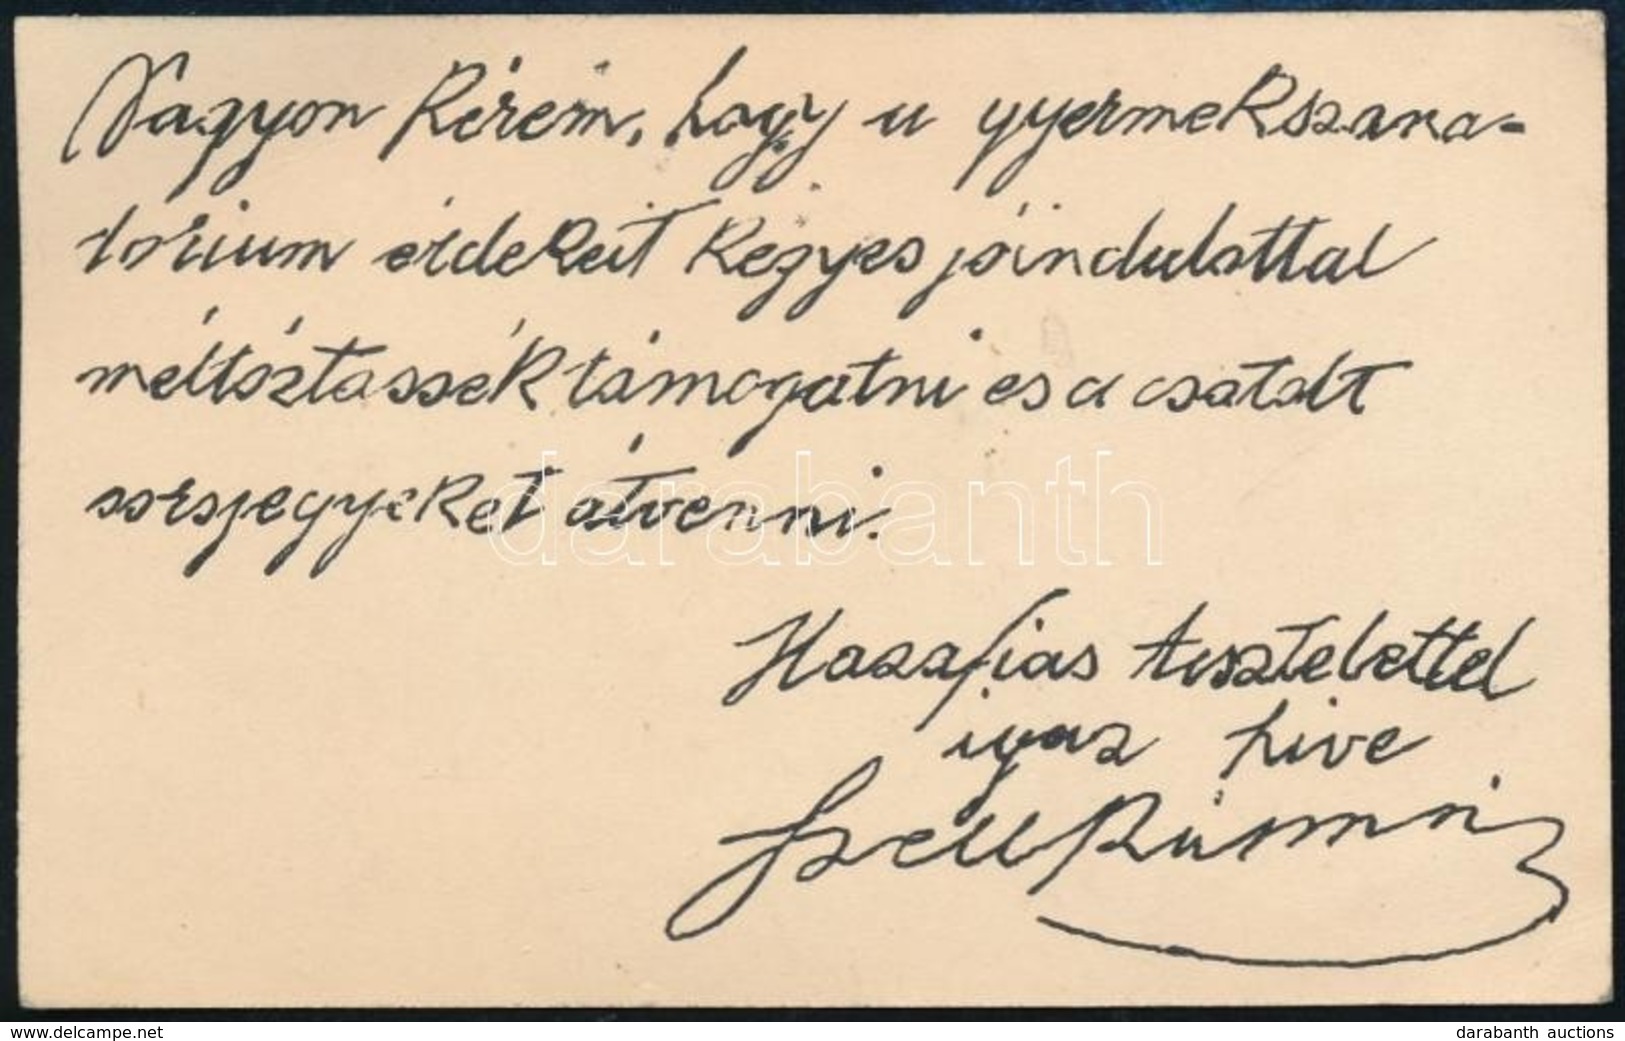 Nagyon kérem, hogy a gyermekszana-
torium érdekeit kegyes jóindulattal
méltóztassék támogatni és a csatolt
sorsjegyeket átvenni.
darabanth
Hazafias tisztelettel
igaz hive
Széll Kálmán
www.delcampe.net
darabanth auctions